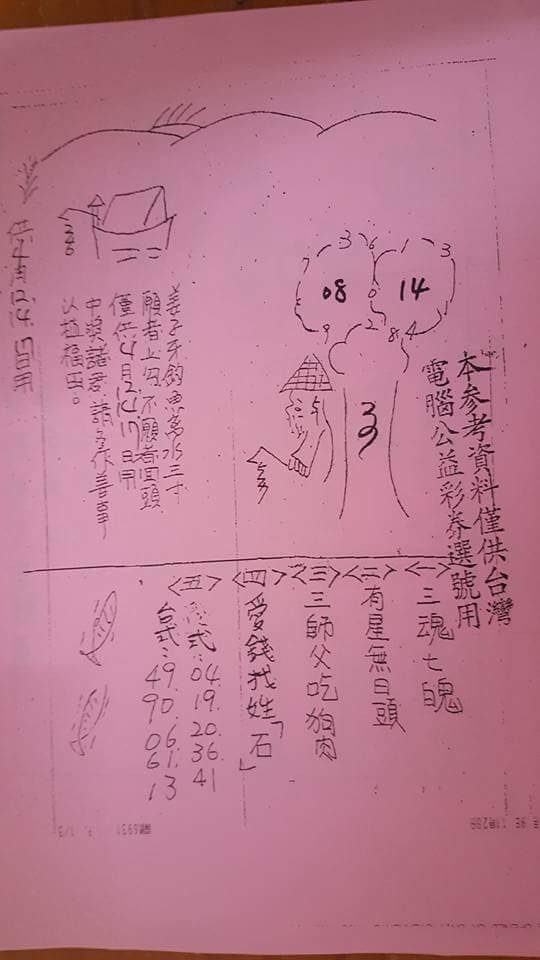 本參考資料僅供台灣
電腦公益彩券選號用
3 6 1 3
7 0
08 14
9 2 8 4
3
姜子牙釣魚离水三寸
願者上勾不願者回頭
僅供4月12.14.17日用
中獎諸君請多作善事
以植福田。
供4月12.14.17日用
<一>三魂七魄
<二>有星無日頭
<三>三師父吃狗肉
<四>愛錢找姓「石」
<五>式:04.19.20.36.41
台式:49.90.06.61.13